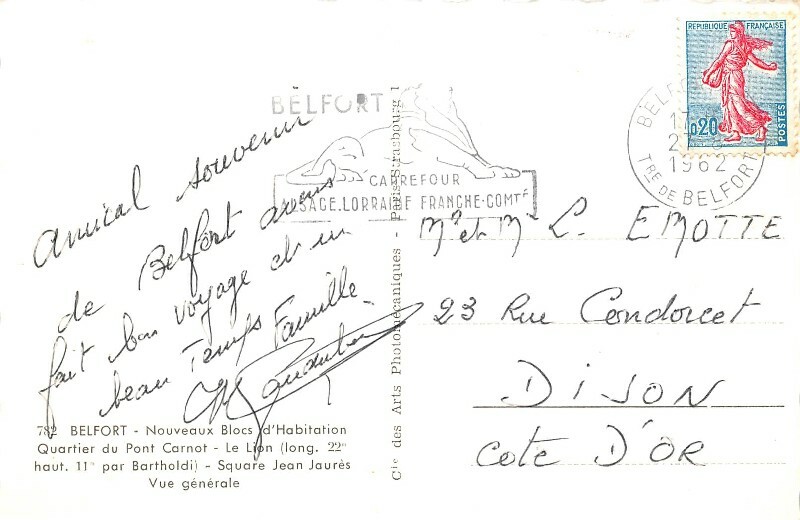 RÉPUBLIQUE FRANÇAISE
0,20
POSTES
BELFORT
1962
TRE DE BELFORT
BELFORT
CARREFOUR
ALSACE.LORRAINE FRANCHE-COMTÉ
Amical souvenir
de Belfort avons
fait bon voyage et un
beau Temps Famille
Mr et Mme L. EMOTTE
23 Rue Condorcet
DIJON
COTE D'OR
Cie des Arts Photomécaniques - Paris-Strasbourg 1
782 BELFORT - Nouveaux Blocs d'Habitation
Quartier du Pont Carnot - Le Lion (long. 22m
haut. 11m par Bartholdi) - Square Jean Jaurès
Vue générale